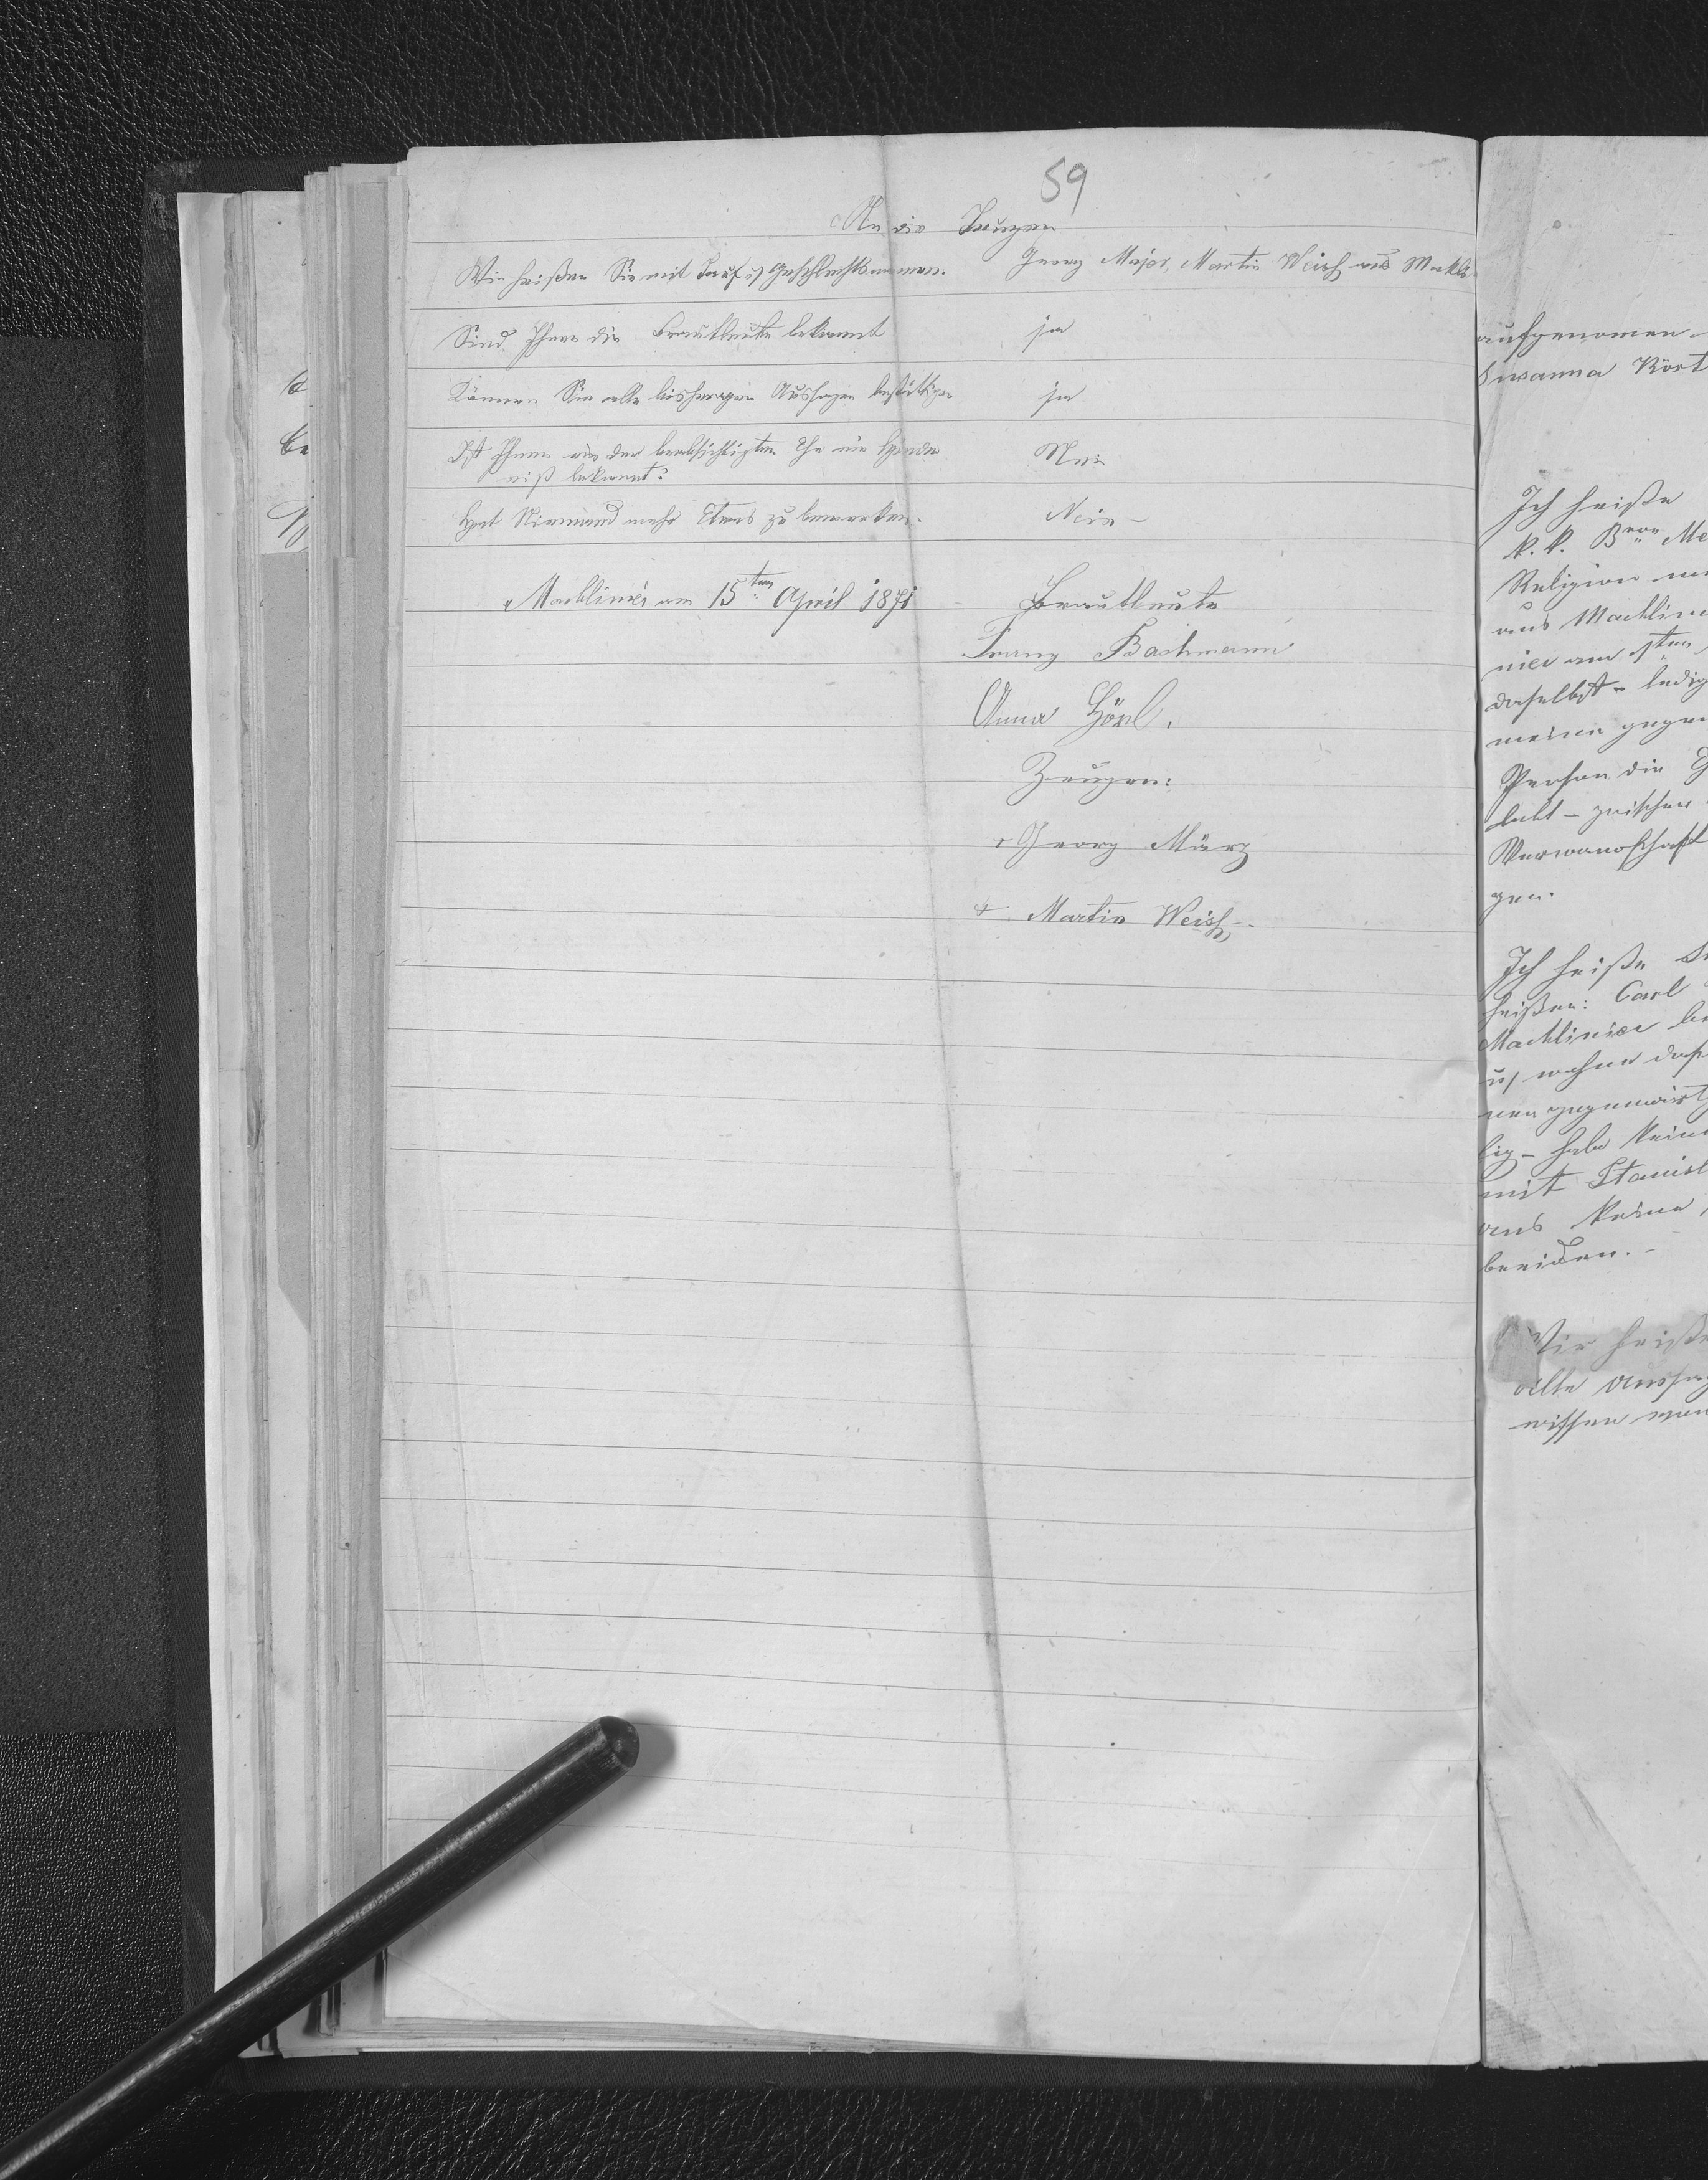 59
An die Zeugen
Wie heißen Sie mit Tauf u/ Geschlechtsnamen. Georg Major, Martin Weiß aus Makli
Sind Ihnen die Brautleute bekannt ja
Können Sie alle bisherigen Aussagen bestättigen ja
Ist Ihnen aus der beabsichtigten Ehe ein Hinder Nein
niß bekannt?
Hat Niemand mehr Etwas zu bemerken. Nein –
Machliniec am 15ten April 1871 Brautleute
Franz Bachmann
Anna Hönl.
Zeugen:
+ Georg März
+ Martin Weiß
aufgenomen –
Susanna Köst
Ich heiße
k. k.
Religion
aus Machlin
niec am
daselbst – ledig
meine gegen
Person die
lebt – zwischen
Verwandschaft
gen.
Ich heiße
heißen: Carl
Machliniec
u/ wohne das
nen gegenwärt
lig – habe keine
mit Stanisl
aus keine
beeiden. –
Wir heiße
alle aussag
wissen